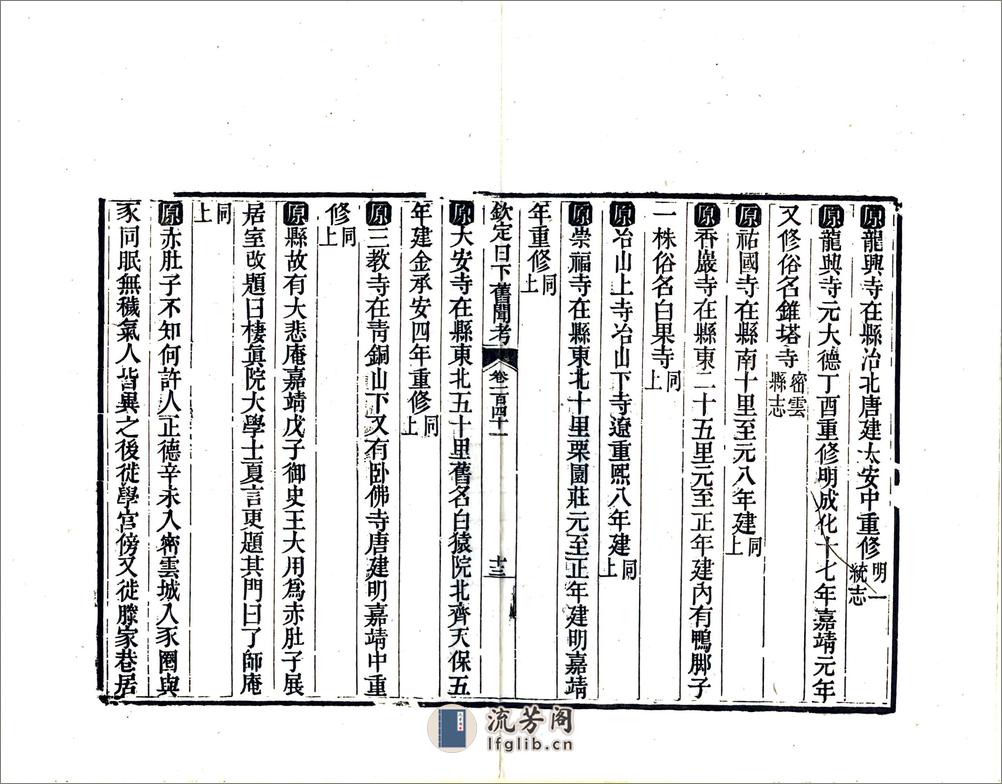 原龍興寺在縣治北唐建大安中重修明一統志
原龍興寺元大德丁酉重修明成化十七年嘉靖元年
又修俗名錐塔寺密雲縣志
原祐國寺在縣南十里至元八年建同上
原香巖寺在縣東二十五里元至正年建內有鴨脚子
一株俗名白果寺同上
原冶山上寺冶山下寺遼重熙八年建同上
原崇福寺在縣東北十里栗園莊元至正年建明嘉靖
年重修同上
欽定日下舊聞考 卷一百四十一 十三
原大安寺在縣東北五十里舊名白猿院北齊天保五
年建金承安四年重修同上
原三教寺在靑銅山下又有卧佛寺唐建明嘉靖中重
修同上
原縣故有大悲庵嘉靖戊子御史王大用爲赤肚子展
居室改題曰棲眞院大學士夏言更題其門曰了師庵
同上
原赤肚子不知何許人正德辛未入密雲城入豕圈與
豕同眠無穢氣人皆異之後徙學宫傍又徙滕家巷居
流芳阁
lfglib.cn